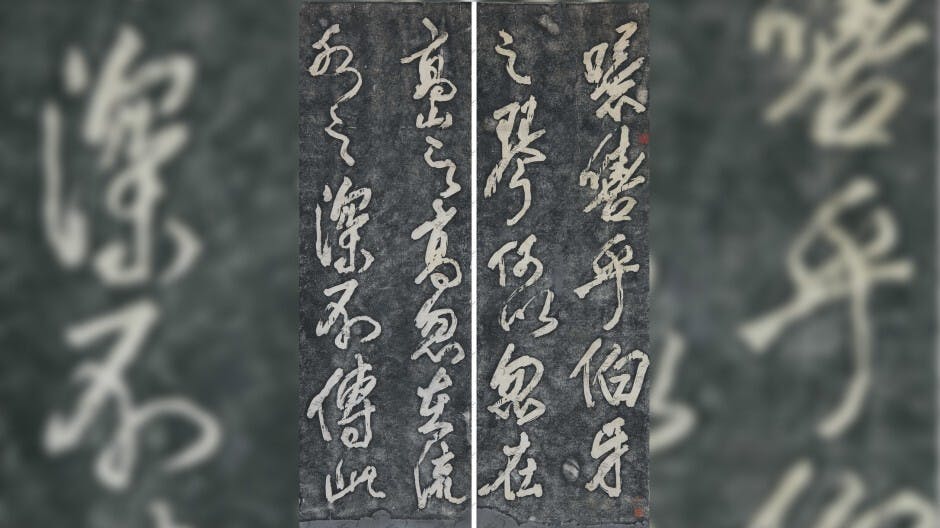 噫嘻乎伯牙
之琴何以忽在
高山之高忽在流
水之深不傳此